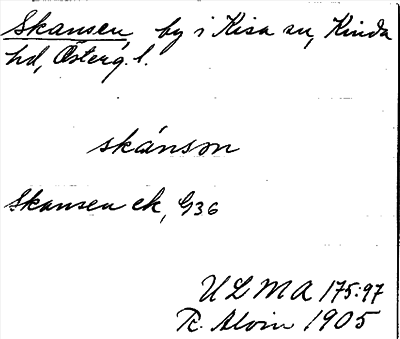 Skansen, by i Kisa sn, Kinda
hd, Österg. l.
skánson
Skansen ek, G36
ULMA 175:97
R. Alvin 1905